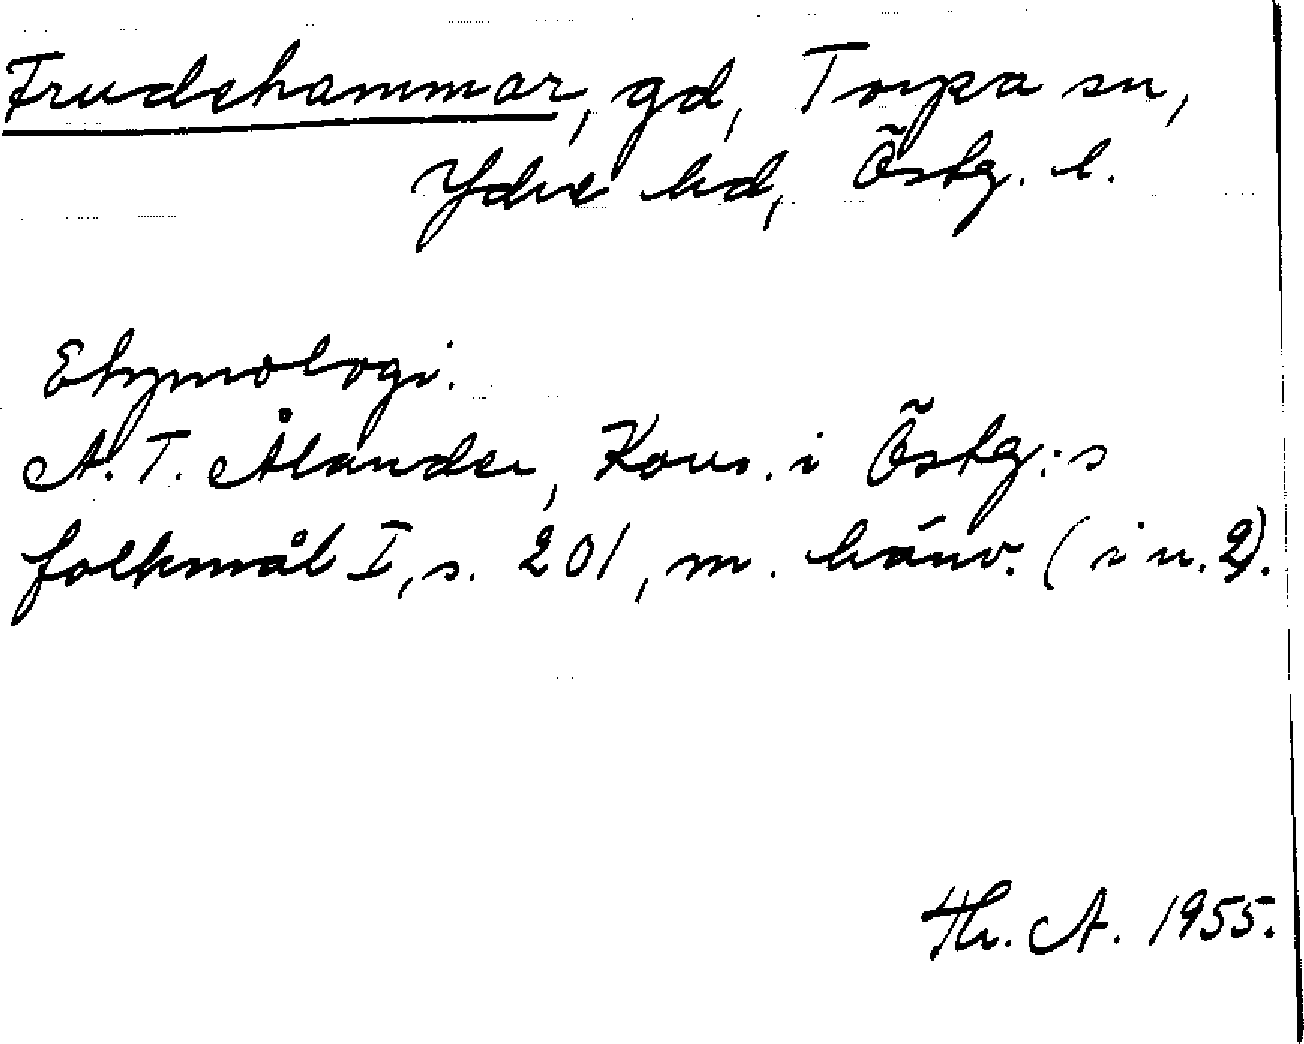 Frudehammar, gd, Torpa sn,
Ydre hd, Östg. l.
Etymologi.
A. T. Ålander, Kons. i Östg:s
folkmål I, s. 201, m. hänv. (i n. 2).
Th. A. 1955.